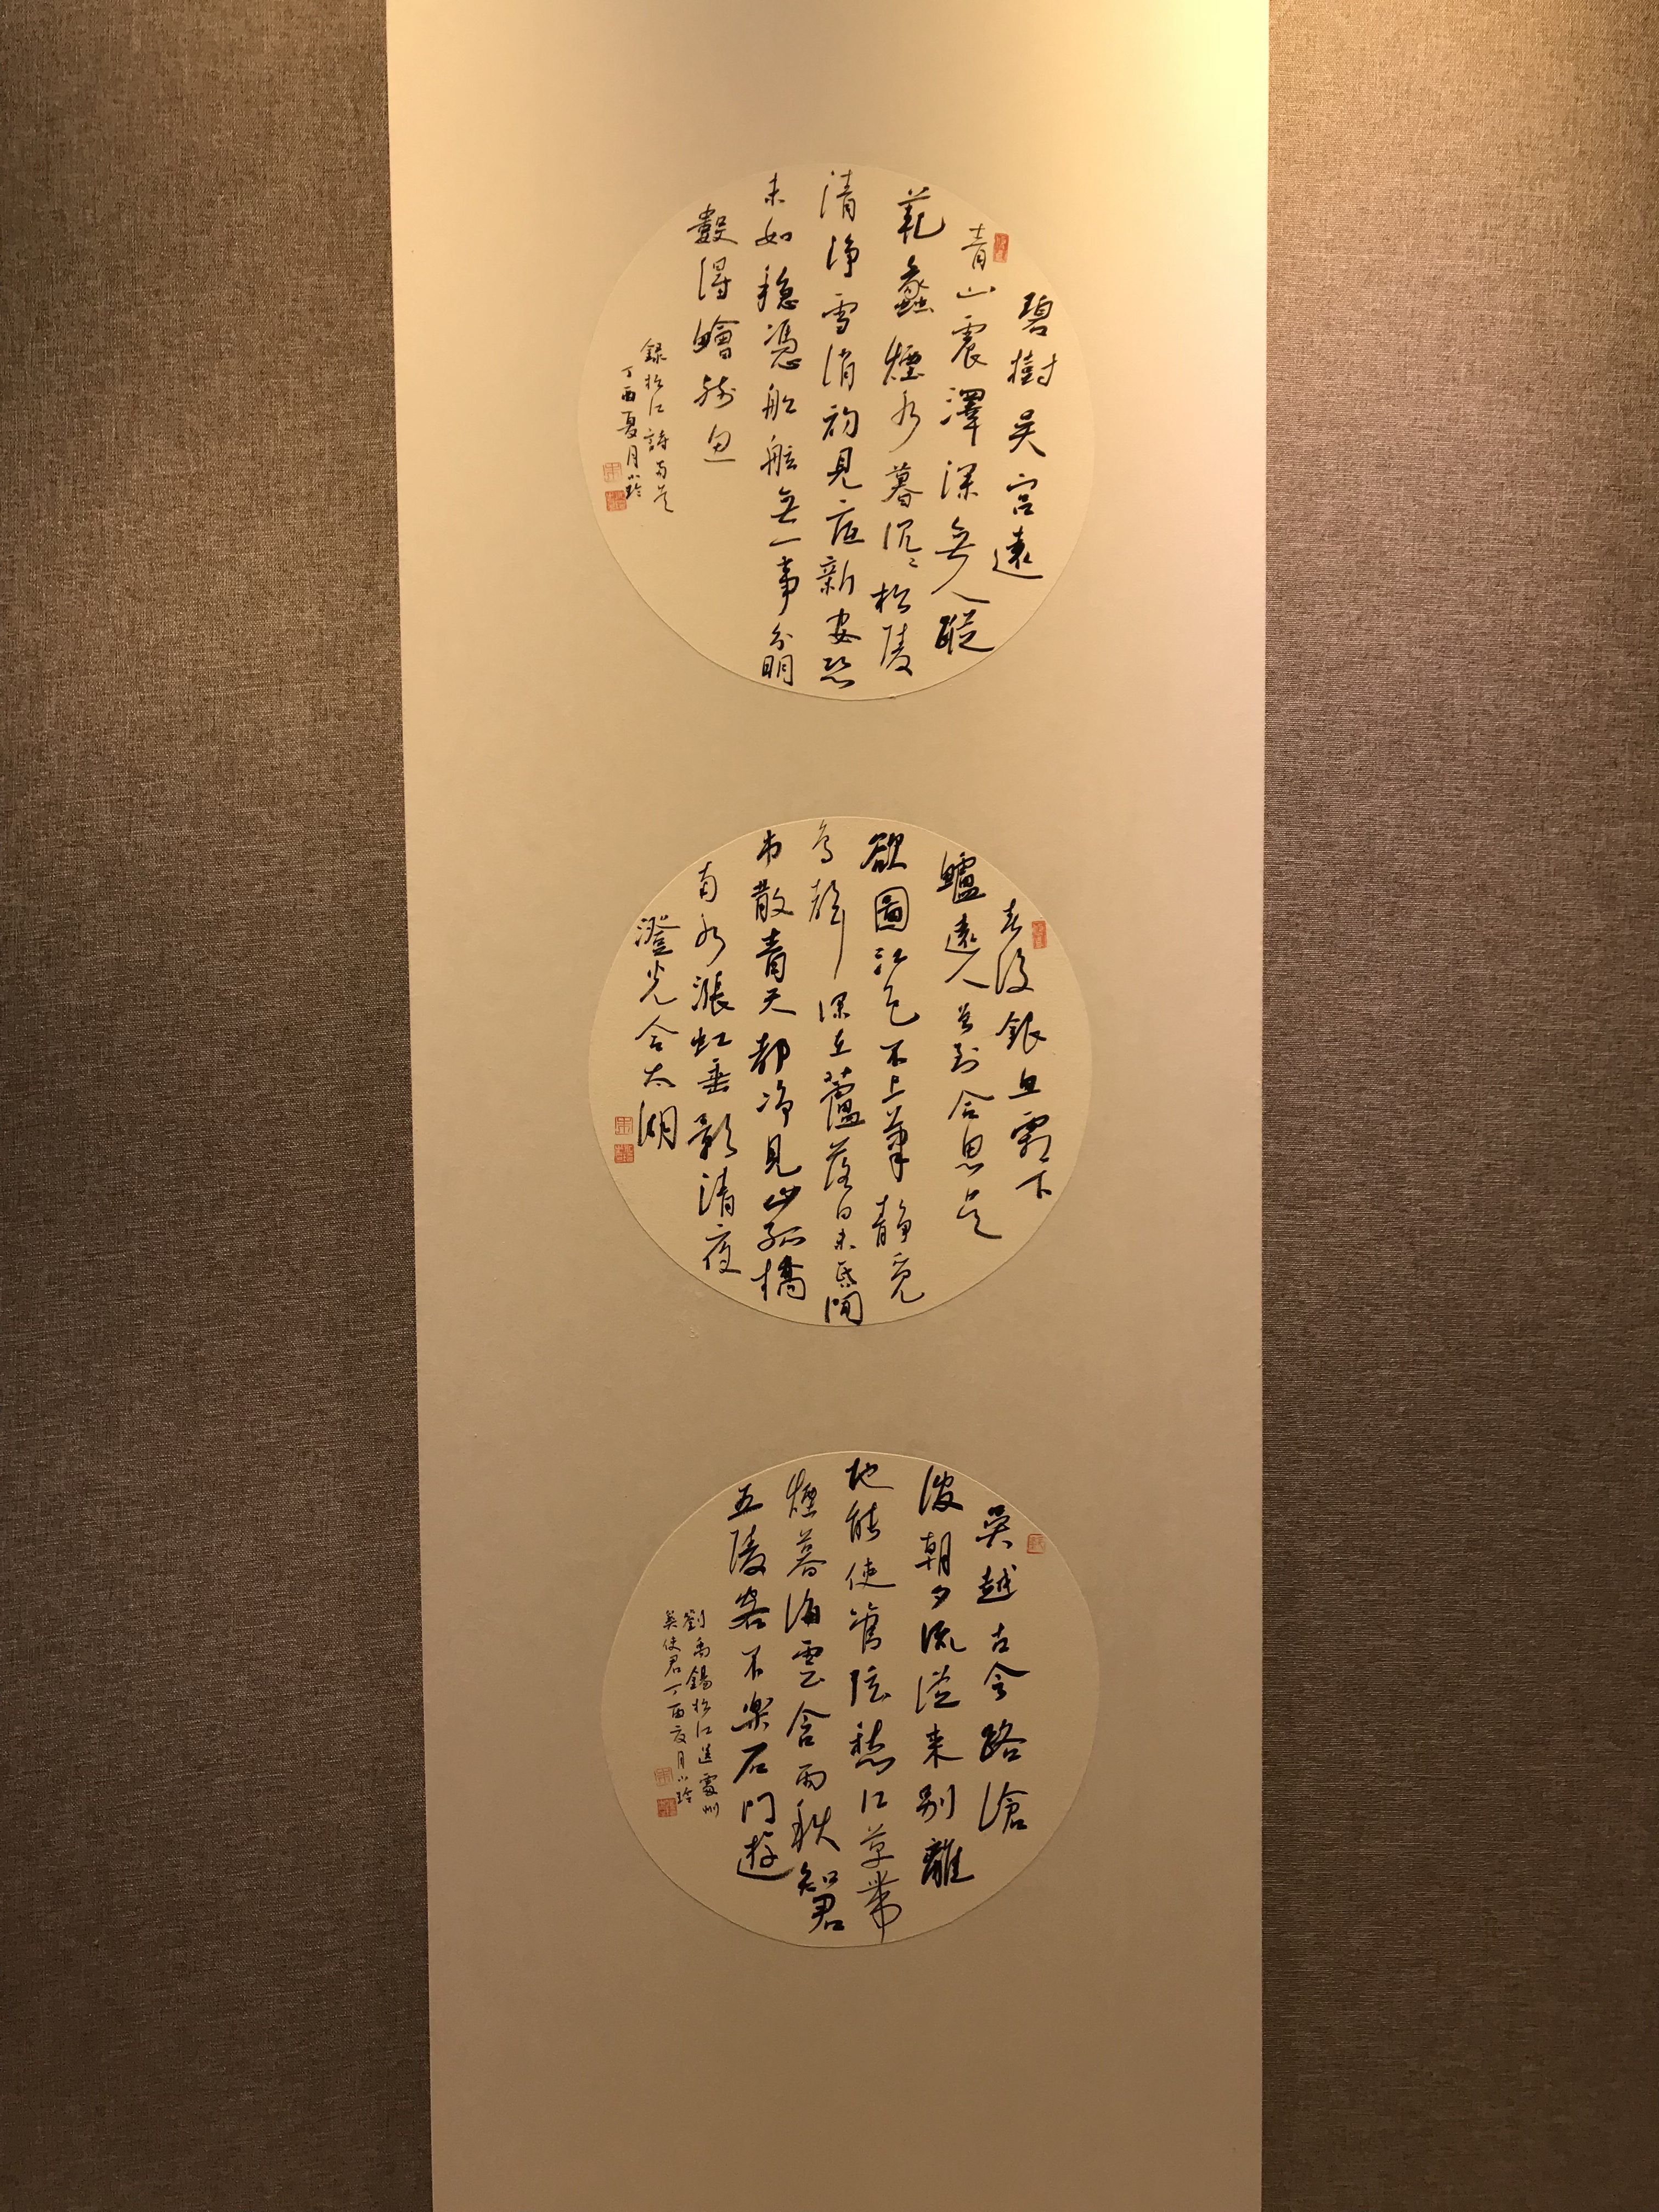 碧樹吳宮遠
青山震澤深無人蹤
范蠡煙水暮沉〻松陵
清淨雪消初見底新安恐
未如穩憑船舷無一事分明
數得鱠殘魚
錄松江詩兩首
丁酉夏月小玲
春後銀魚霜下
鱸遠人曾到合思吳
欲圖江色不上筆靜覓
鳥聲深在蘆落日未昏聞
市散青天都淨見山孤橋
南水漲虹垂影清夜
澄光合太湖
吳越古今路滄
波朝夕流從來別離
地能使管弦愁江草帶
煙暮海雲含雨秋知君
五陵客不樂石門遊
劉禹錫松江送處州
奚使君丁酉夏月小玲